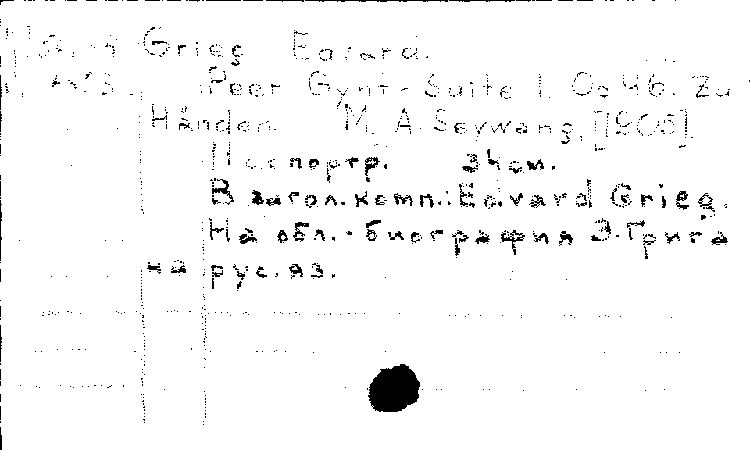 Grieg Edvard.
Peer Gynt-Suite I. Op 46. Zu
Händen. M. A. Seywang, [1906].
11 с. с портр. 34 см.
В загол. комп.: Edvard Grieg.
На обл. - биография Э. Грига
на рус. яз.